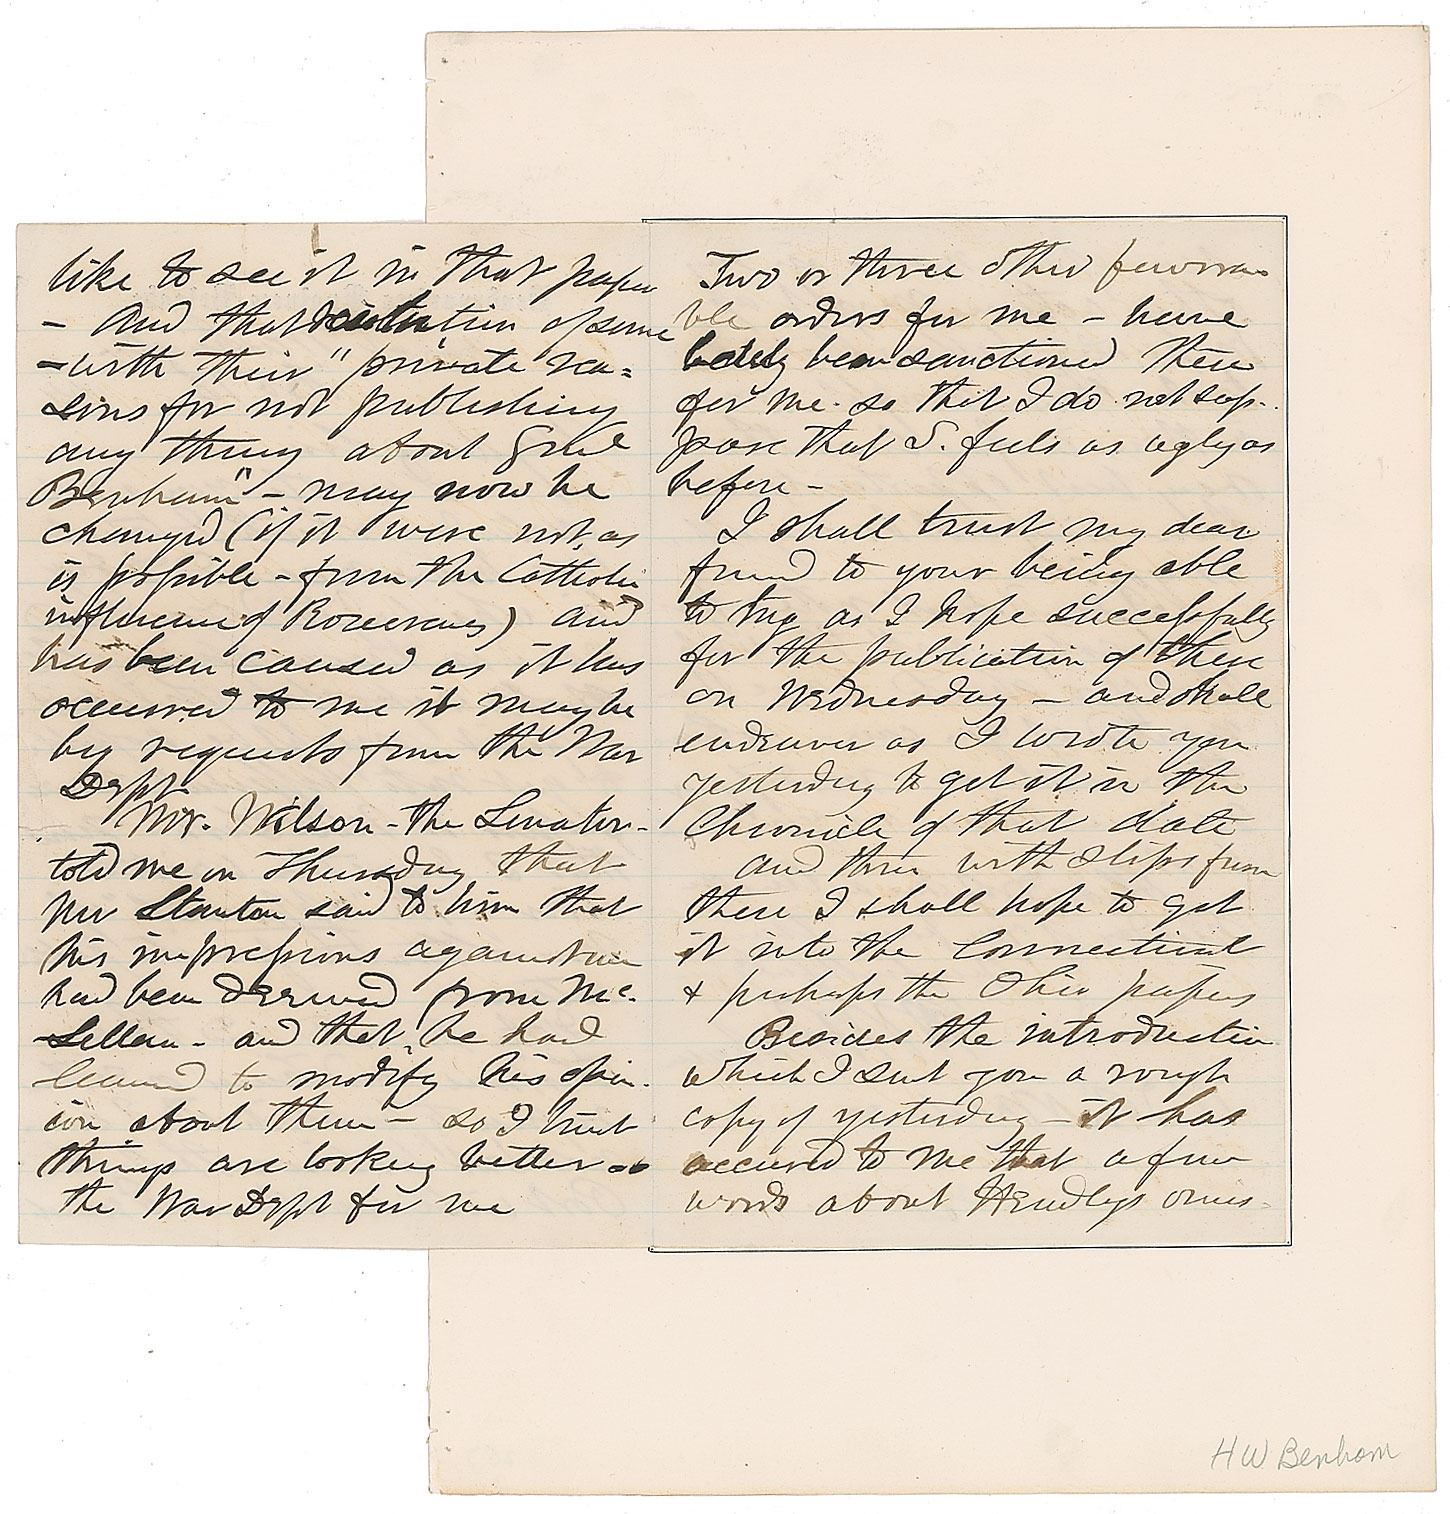 like to see it in that paper
- And that tion of some
- with their "private rea=
sons for not publishing
any thing about Genl
Benham" - may now be
changed (if it were not, as
is possible - from the Catholic
influence of Rosecrans) and
has been caused as it has
occurred to me it may be
by requests from the War
Dept.
Mr. Wilson - the Senator -
told me on Thursday that
Mr Stanton said to him that
his impressions against me
had been derived from Mc.
Lellan - and that he had
learned to modify his opin-
ion about them - so I trust
things are looking better at
the War Dept for me
Two or three other favora
ble orders for me - have
lately been sanctioned there
for me. so that I do not sup-
pose that S. feels as ugly as
before -
I shall trust my dear
friend to your being able
to try as I hope successfully
for the publication of these
on Wednesday - and shall
endeavor as I wrote you
yesterday to get it in the
Chronicle of that date
and then with slips from
there I shall hope to get
it into the Connecticut
& perhaps the Ohio papers
Besides the introduction
which I sent you a rough
copy of yesterday - it has
occurred to me that a few
words about Hendleys omis-
H W Benham